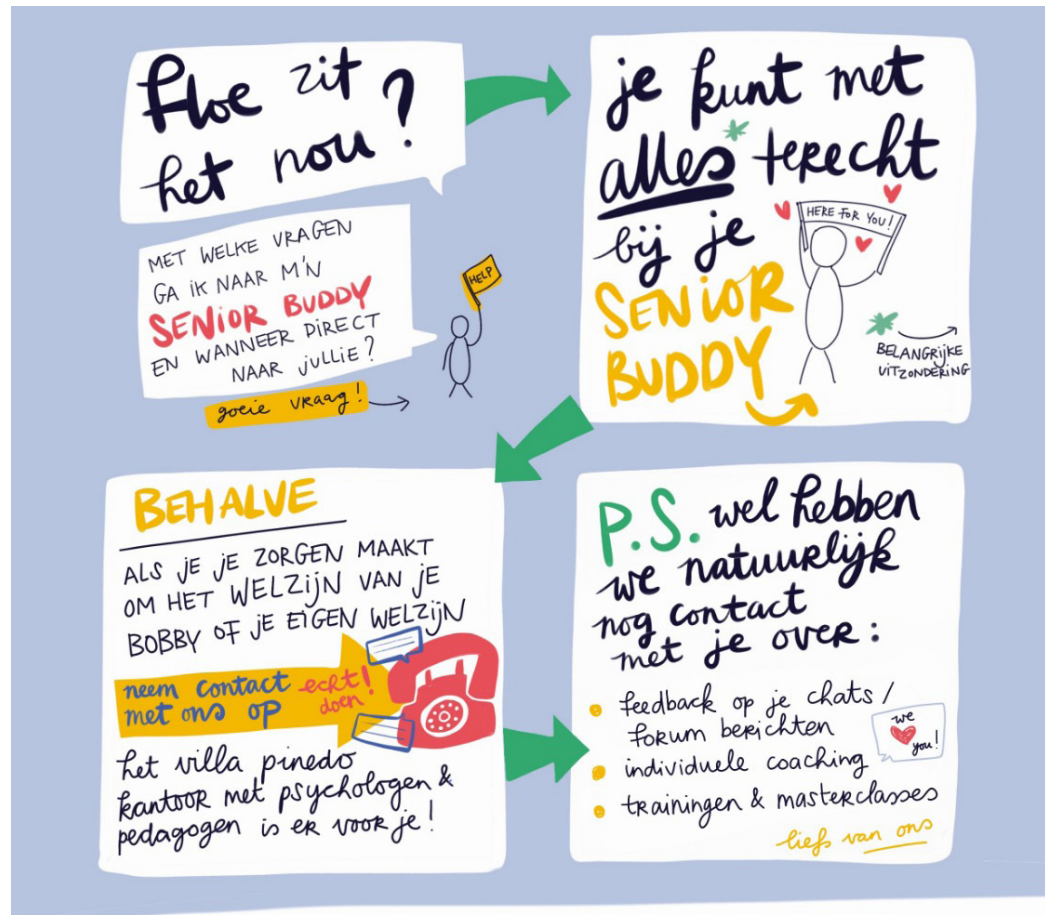 Hoe zit
het nou?
MET WELKE VRAGEN
GA iK NAAR M'N
SENiOR BUDDY
EN WANNEER DiRECT
NAAR jULLiE?
goeie vraag!
HELP
je kunt met
alles* terecht
bij je
SENiOR
BUDDY
HERE FOR YOU!
* BELANGRijKE
UiTZONDERiNG
BEHALVE
ALS jE jE ZORGEN MAAKT
OM HET WELZijN VAN jE
BOBBY OF jE EiGEN WELZijN
neem contact
met ons op
echt!
doen
het villa pinedo
kantoor met psychologen &
pedagogen is er voor je!
P.S. wel hebben
we natuurlijk
nog contact
met je over:
feedback op je chats /
forum berichten
individuele coaching
trainingen & masterclasses
we
you!
liefs van ons